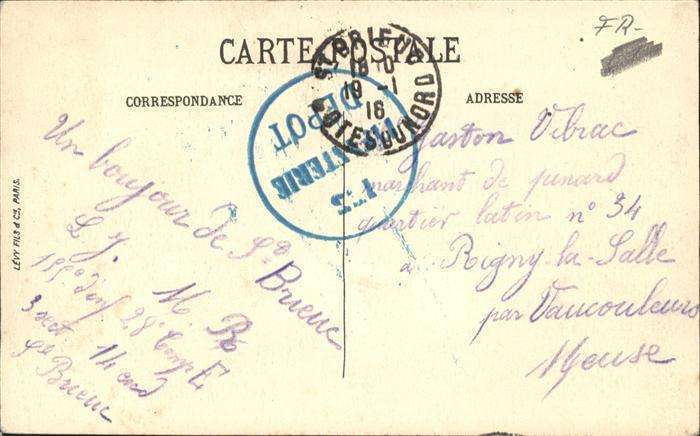 FR-
CARTE POSTALE
CORRESPONDANCE
ADRESSE
ST BRIEUC
18 10
19 -1
16
COTES DU NORD
INFANTERIE
DEPOT
Un bonjour de St
Brieuc
M. R
28e Comp E
3 sect 14 esd
St Brieuc
Gaston Vibrac
marchant de pinard
quartier latin n° 34
a Rigny-la-Salle
par Vaucouleurs
Meuse
LÉVY FILS & CIE, PARIS.